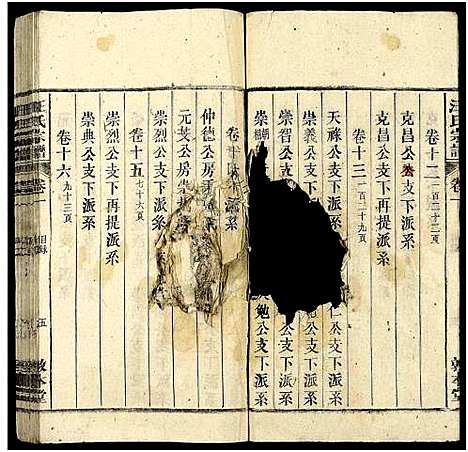 汪氏宗譜
卷一
敦本堂
卷十二 一百三十二頁
克昌公支下派系
克昌公支下再提派系
卷十三 一百二十九頁
天祿公支下派系
仁公支下派系
崇義公支下派系
崇智公支下派系
勉公支下派系
崇
卷十
仲德公房
派系
元芝公房崇
崇烈公支下派系
卷十五 七十六頁
崇烈公支下再提派系
崇典公支下派系
卷十六 九十三頁
汪氏宗譜
卷一
目錄
五
敦本堂